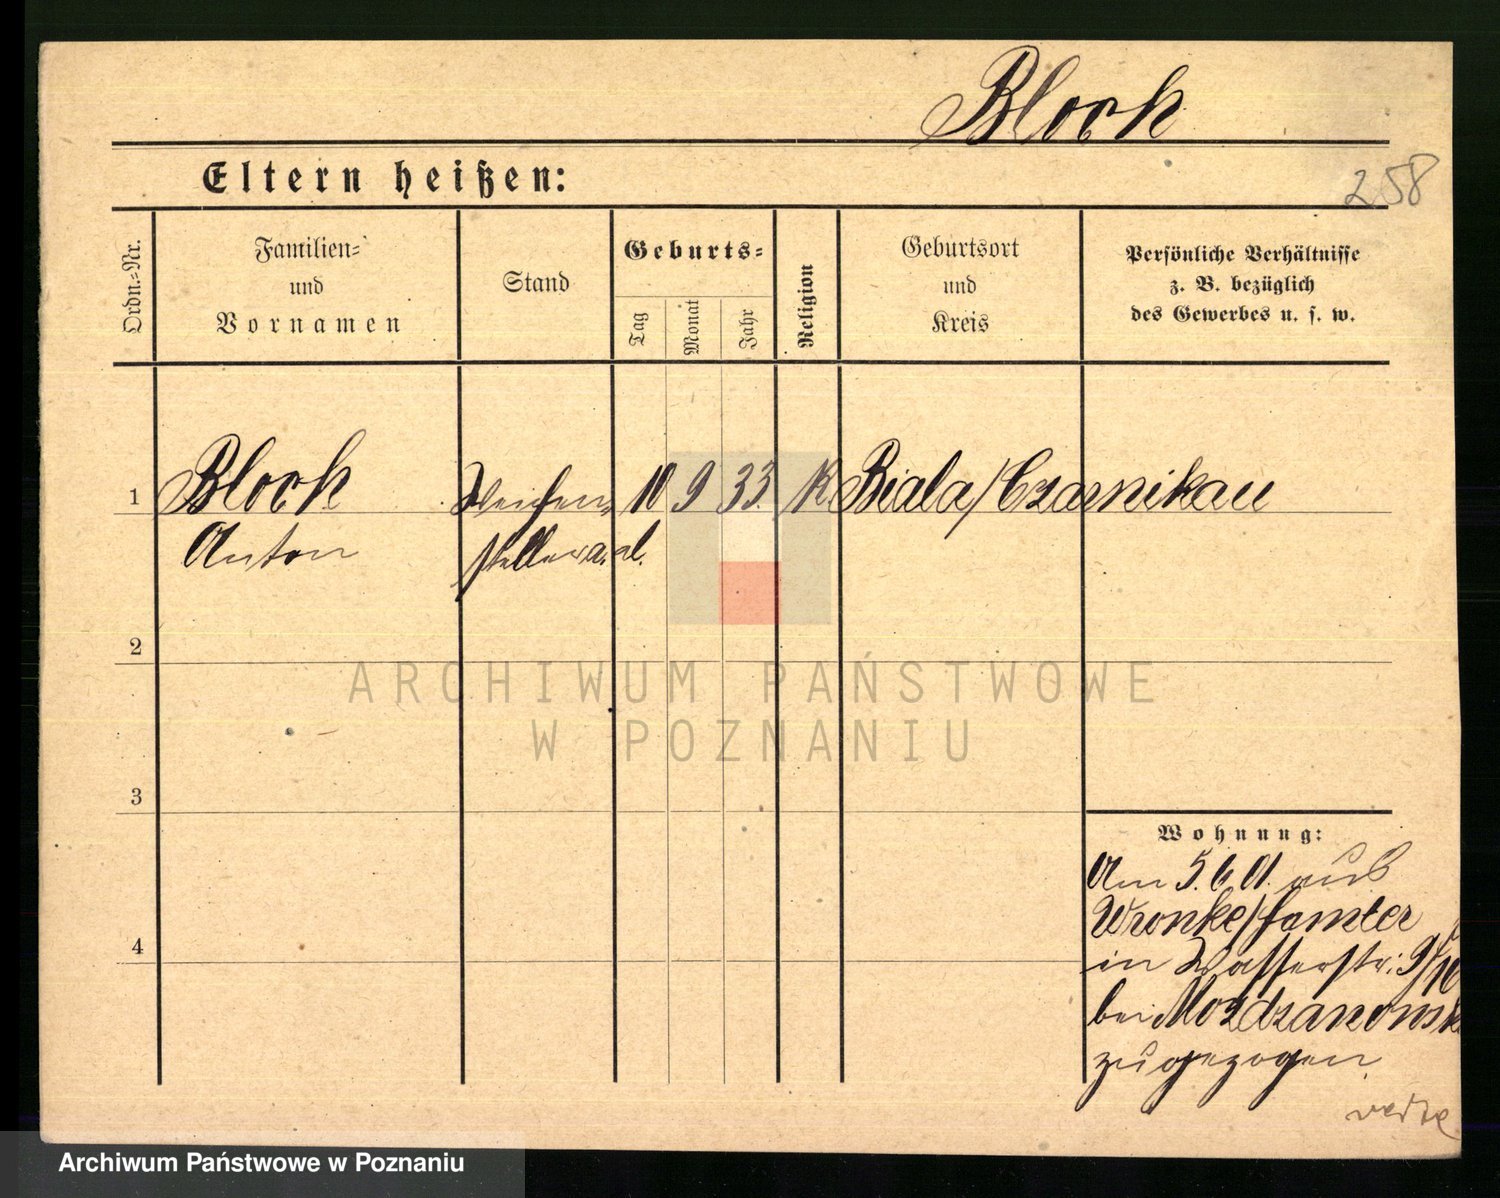 Block
Eltern heißen:
258
Ordn.-Nr.
Familien-
und
Vornamen
Stand
Geburts-
Tag
Monat
Jahr
Religion
Geburtsort
und
Kreis
Persönliche Verhältnisse
z. B. bezüglich
des Gewerbes u. s. w.
1
Block Weichen- 10 9 33. K Biala/Czarnikau
Anton steller a. d.
2
ARCHIWUM PAŃSTWOWE
W POZNANIU
3
Wohnung:
Am 5.6.01. aus
Wronke/Samter
4
in Wasserstr: 9/10
bei Mozdzanowsk
zugezogen
Archiwum Państwowe w Poznaniu